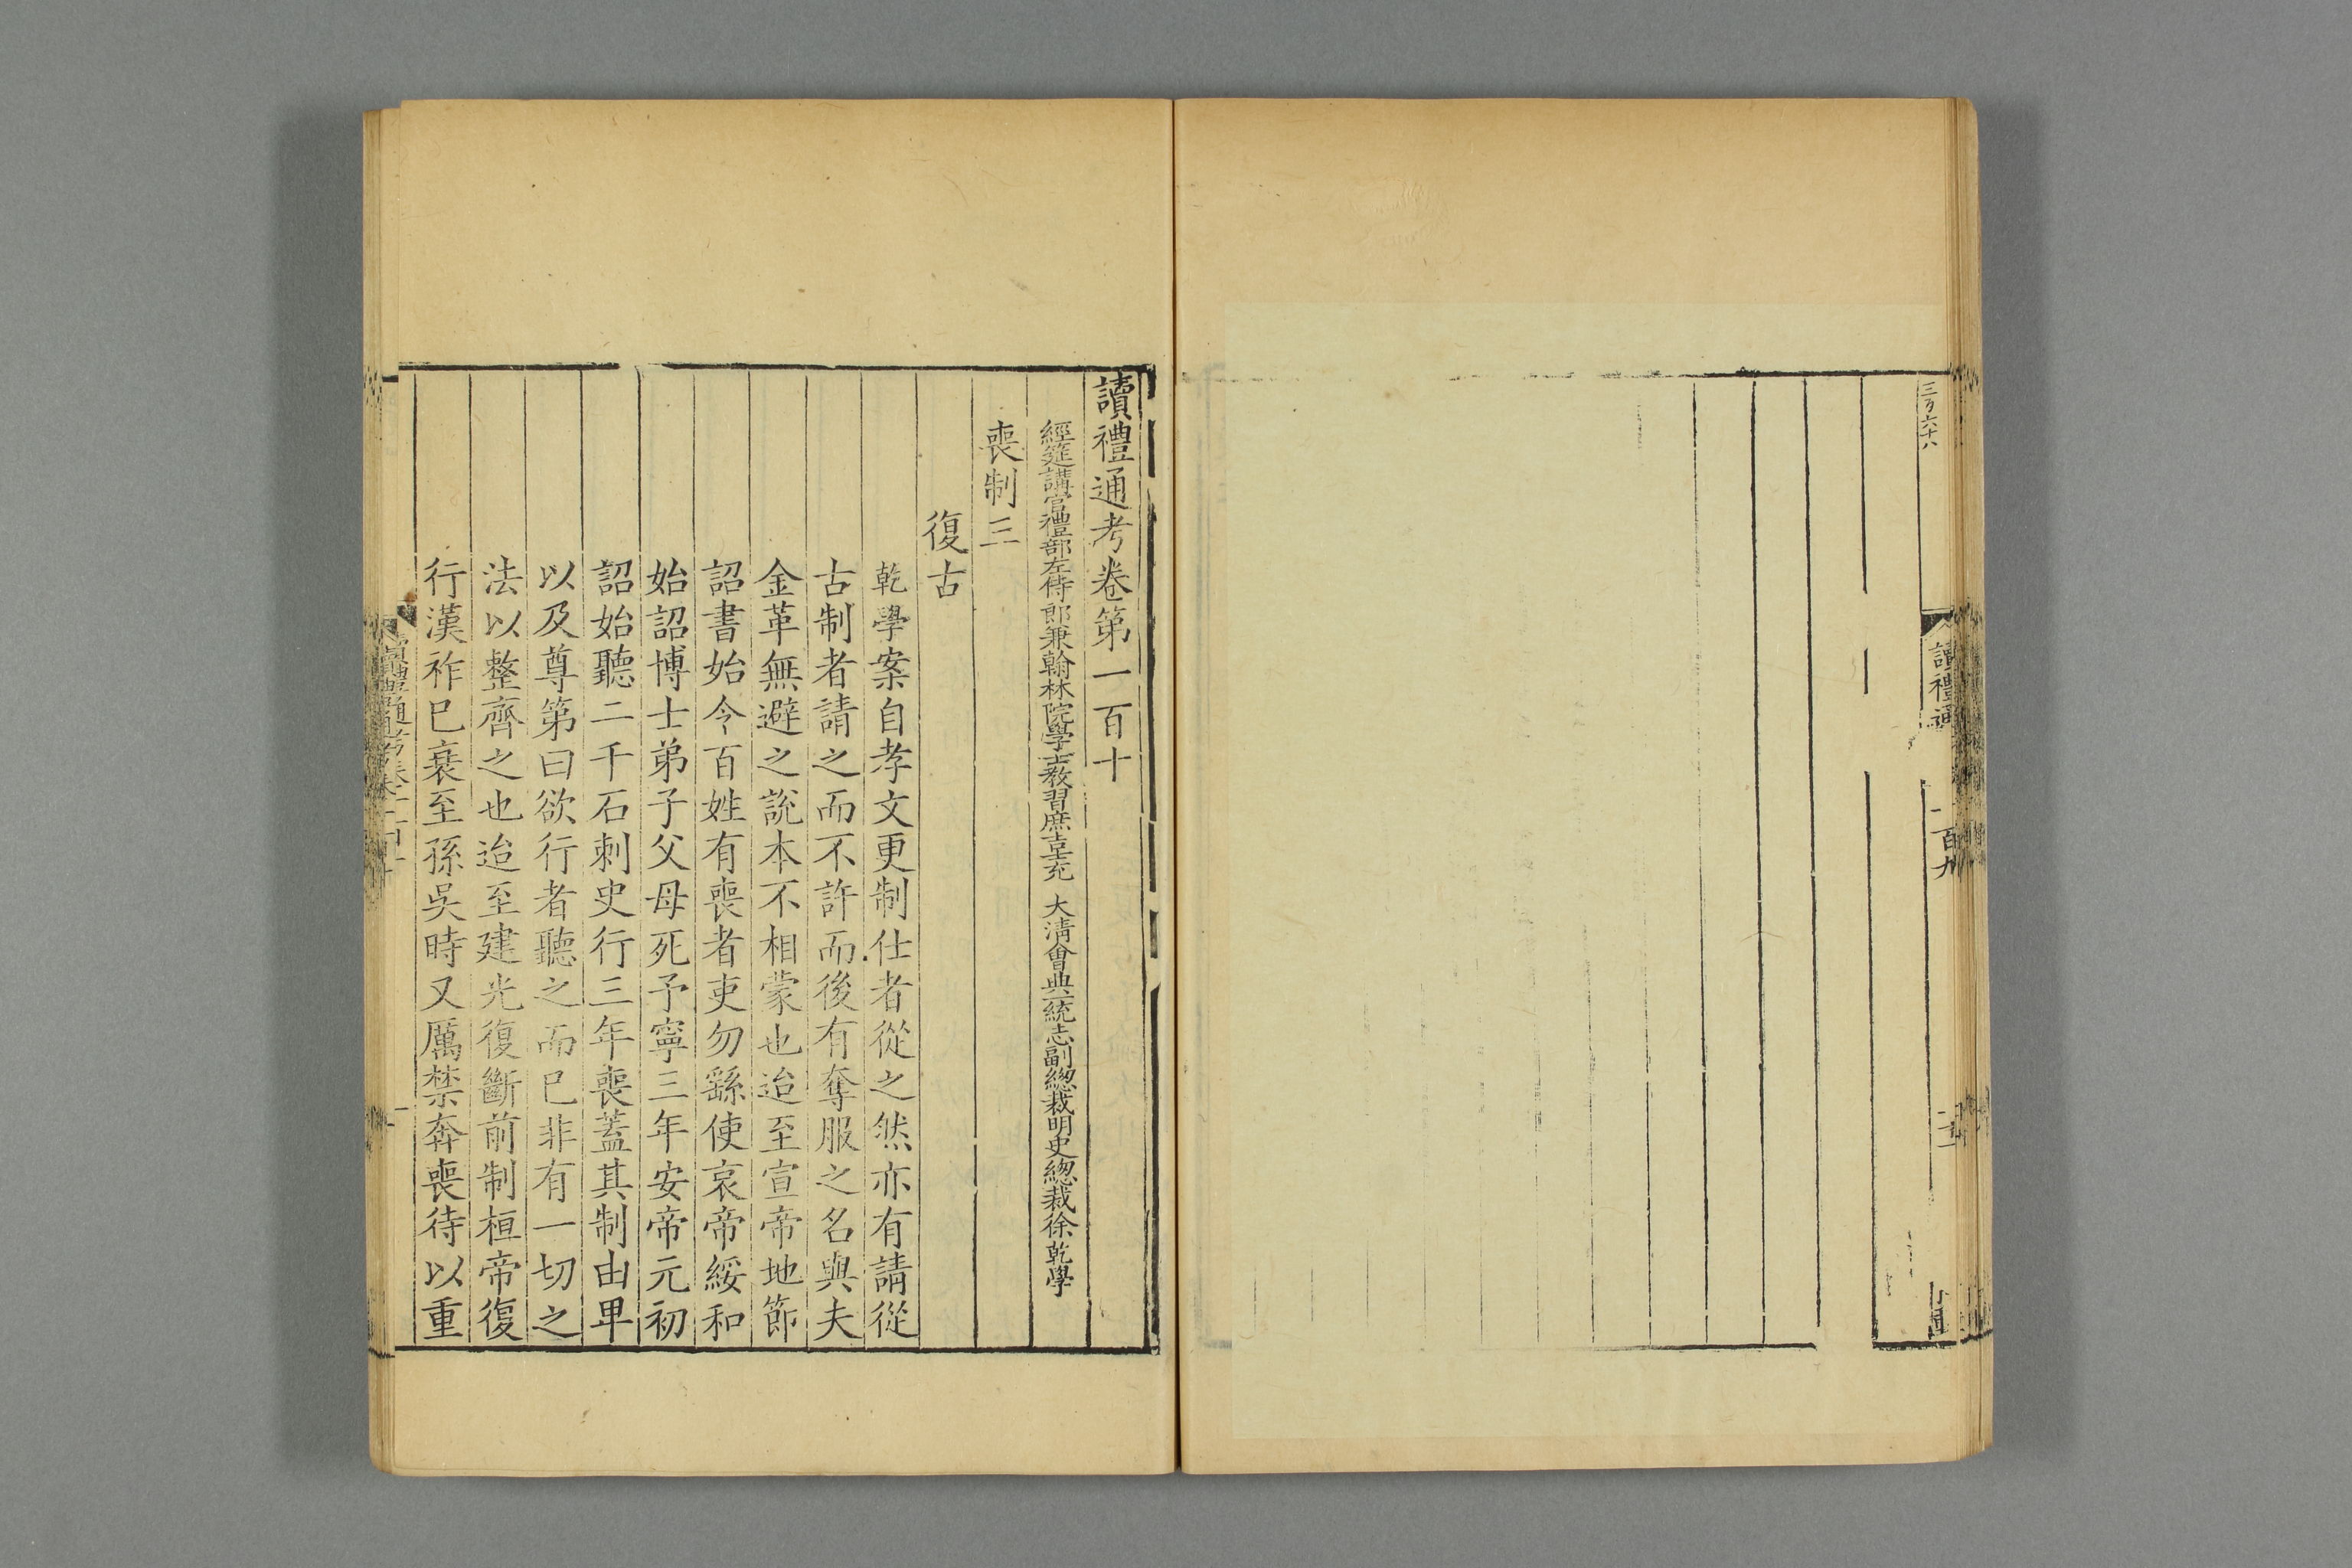 三百六十八
讀禮通
一百九
讀禮通考卷第一百十
經筵講官禮部左侍郎兼翰林院學士教習庶吉士充　大清會典一統志副總裁明史總裁徐乾學
喪制三
復古
乾學案自孝文更制仕者從之然亦有請從
古制者請之而不許而後有奪服之名與夫
金革無避之說本不相蒙也迨至宣帝地節
詔書始令百姓有喪者吏勿繇使哀帝綏和
始詔博士弟子父母死予寧三年安帝元初
詔始聽二千石刺史行三年喪蓋其制由卑
以及尊第曰欲行者聽之而已非有一切之
法以整齊之也迨至建光復斷前制桓帝復
行漢祚已衰至孫吳時又厲禁奔喪待以重
讀禮通考卷一百十
一